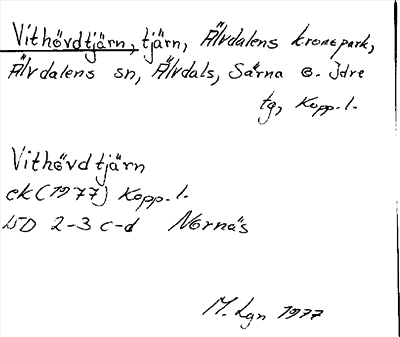 Vithövdtjärn, tjärn, Älvdalens kronopark,
Älvdalens sn, Älvdals, Särna o. Idre
tg, Kopp. l.
Vithövdtjärn
ek (1977) Kopp. l.
15D 2-3 c-d Nornäs
M. Lgn 1977